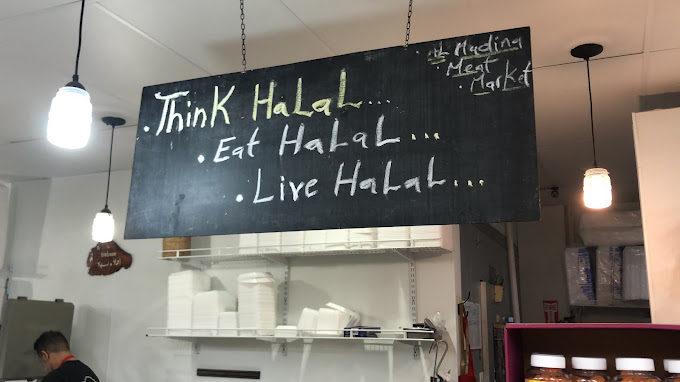 . Think Halal...
. Eat Halal...
. Live Halal...
AL Madina
. Meat
. Market
Welcome